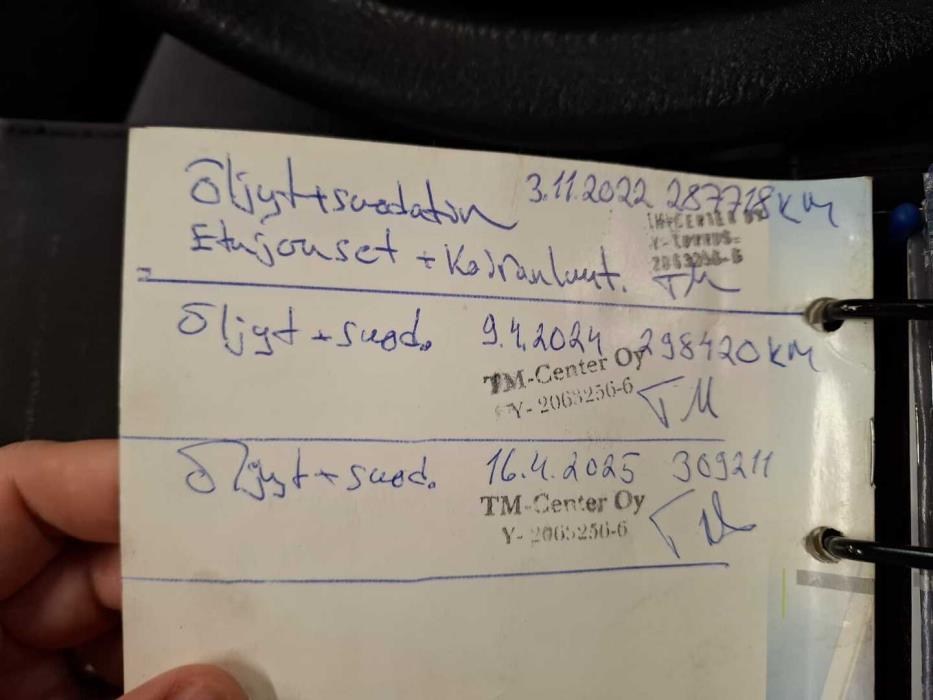 Öljyt + suodatin 3.11.2022 287718 KM
TM-CENTER OY
Etujouset + Koiranluut. TM
Öljyt + suod. 9.4.2024 298420 KM
TM-Center Oy
Y- 2063256-6 TM
Öljyt + suod. 16.4.2025 309211
TM-Center Oy
Y- 2063256-6 TM